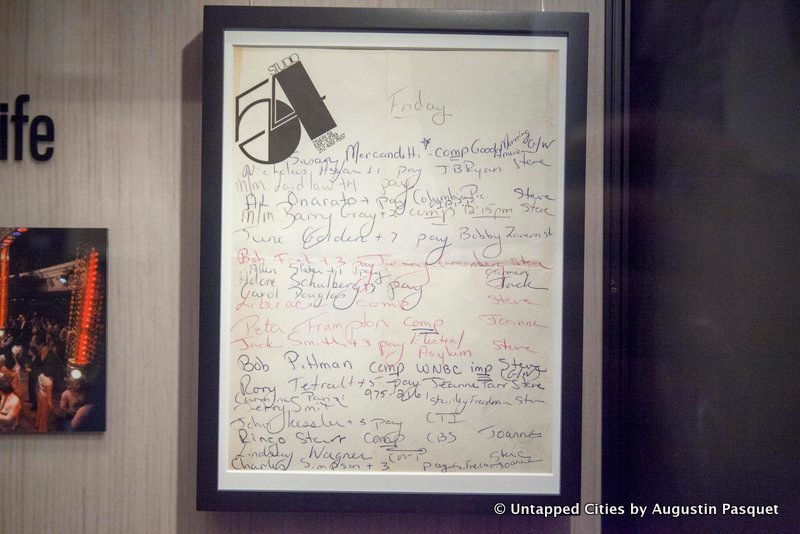 ife
STUDIO
54
Friday
Susan Mercandetti comp Good Morning America
Nicholas +1 pay JB Ryan Steve
m/m Laidlaw +4 pay
Al Onarato + pay Columbia Pic Steve
m/m Barry Gray +2 comp 12:15pm Steve
June Golden +7 pay Bobby
Bob +3 pay Jerry Greenberg Steve
Allen +1 pay Carmen
Schulberg +3 pay Jack
Carol Douglas
Liberace comp Steve
Peter Frampton comp Joanne
Jack Smith +3 pay Electra/ Steve
Asylum
Bob Pittman comp WNBC imp Steve
Rory Tetralt +5 pay Jeanne Tarr Steve
Stanley Freedman
Jerry Smit
John Kessler +3 pay CTI
Ringo Starr Comp. CBS Joanne
Lindsay Wagner Comp Steve
Charles Simpson +3 pay Joanne
© Untapped Cities by Augustin Pasquet